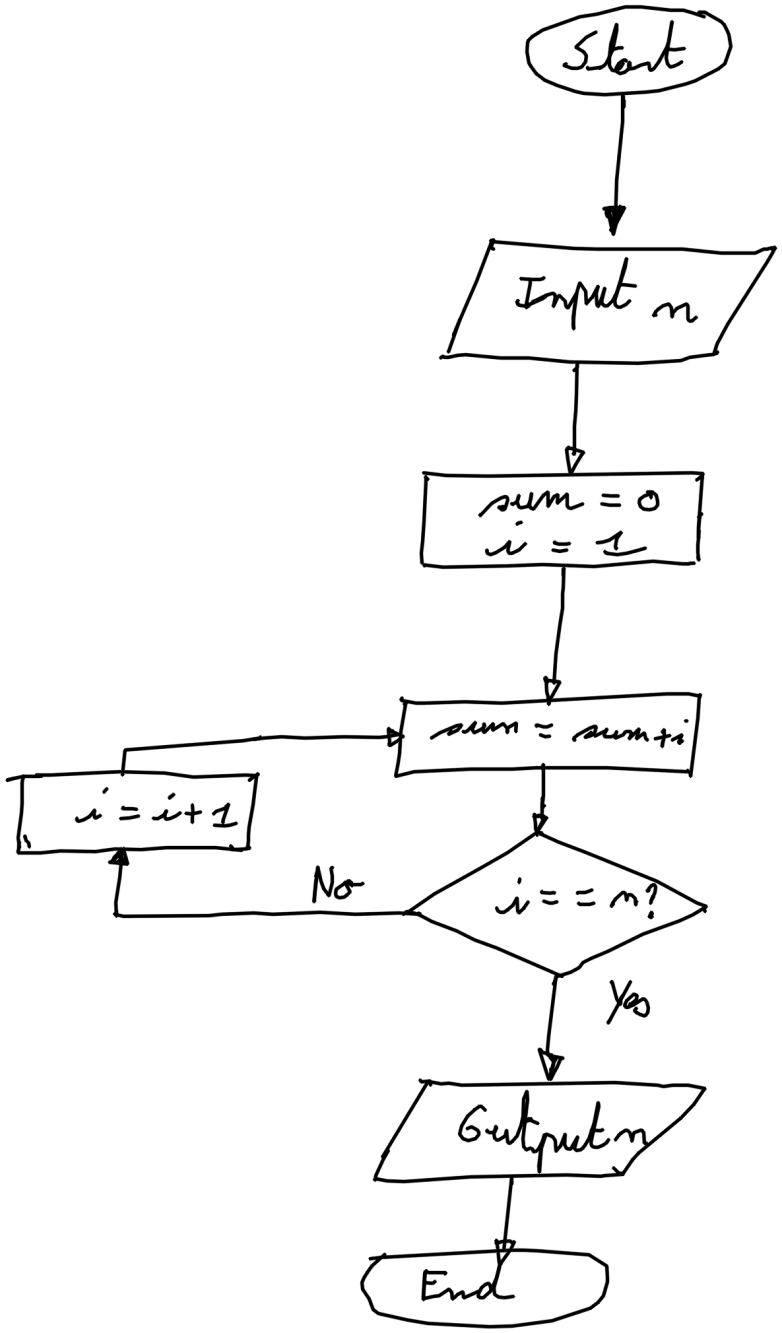 Start
Input n
sum = 0
i = 1
sum = sum+i
i = i+1
i == n?
No
Yes
Output n
End